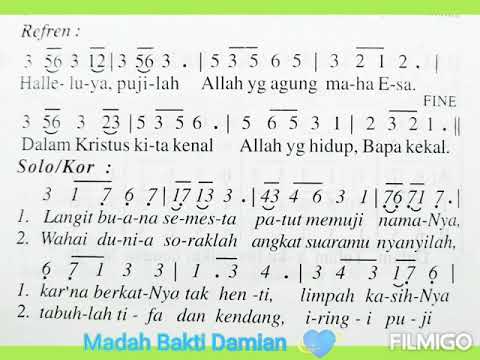 Refren :
3 56 3 12 | 3 56 3 . | 5 3 5 6 5 | 3 2 1 2 . |
Halle- lu-ya, puji-lah Allah yg agung ma-ha E-sa.
FINE
3 56 3 23 | 5 3 5 6 . | 5 6 5 3 1 | 2 3 2 1 . ||
Dalam Kristus ki-ta kenal Allah yg hidup, Bapa kekal.
Solo/Kor :
3 1 7 6 7 | 17 13 3 . | 43 4 6 3 1 | 76 71 7 . |
1. Langit bu-a-na se-mes-ta pa-tut memuji nama-Nya,
2. Wahai du-ni-a so-raklah angkat suaramu nyanyilah,
6 7 1 3 3 | 1 . 3 4 . | 3 4 3 17 6 |
1. kar'na berkat-Nya tak hen-ti, limpah ka-sih-Nya
2. tabuh-lah ti - fa dan kendang, i-ring - i pu - ji
Madah Bakti Damian
MADE WITH
FILMIGO